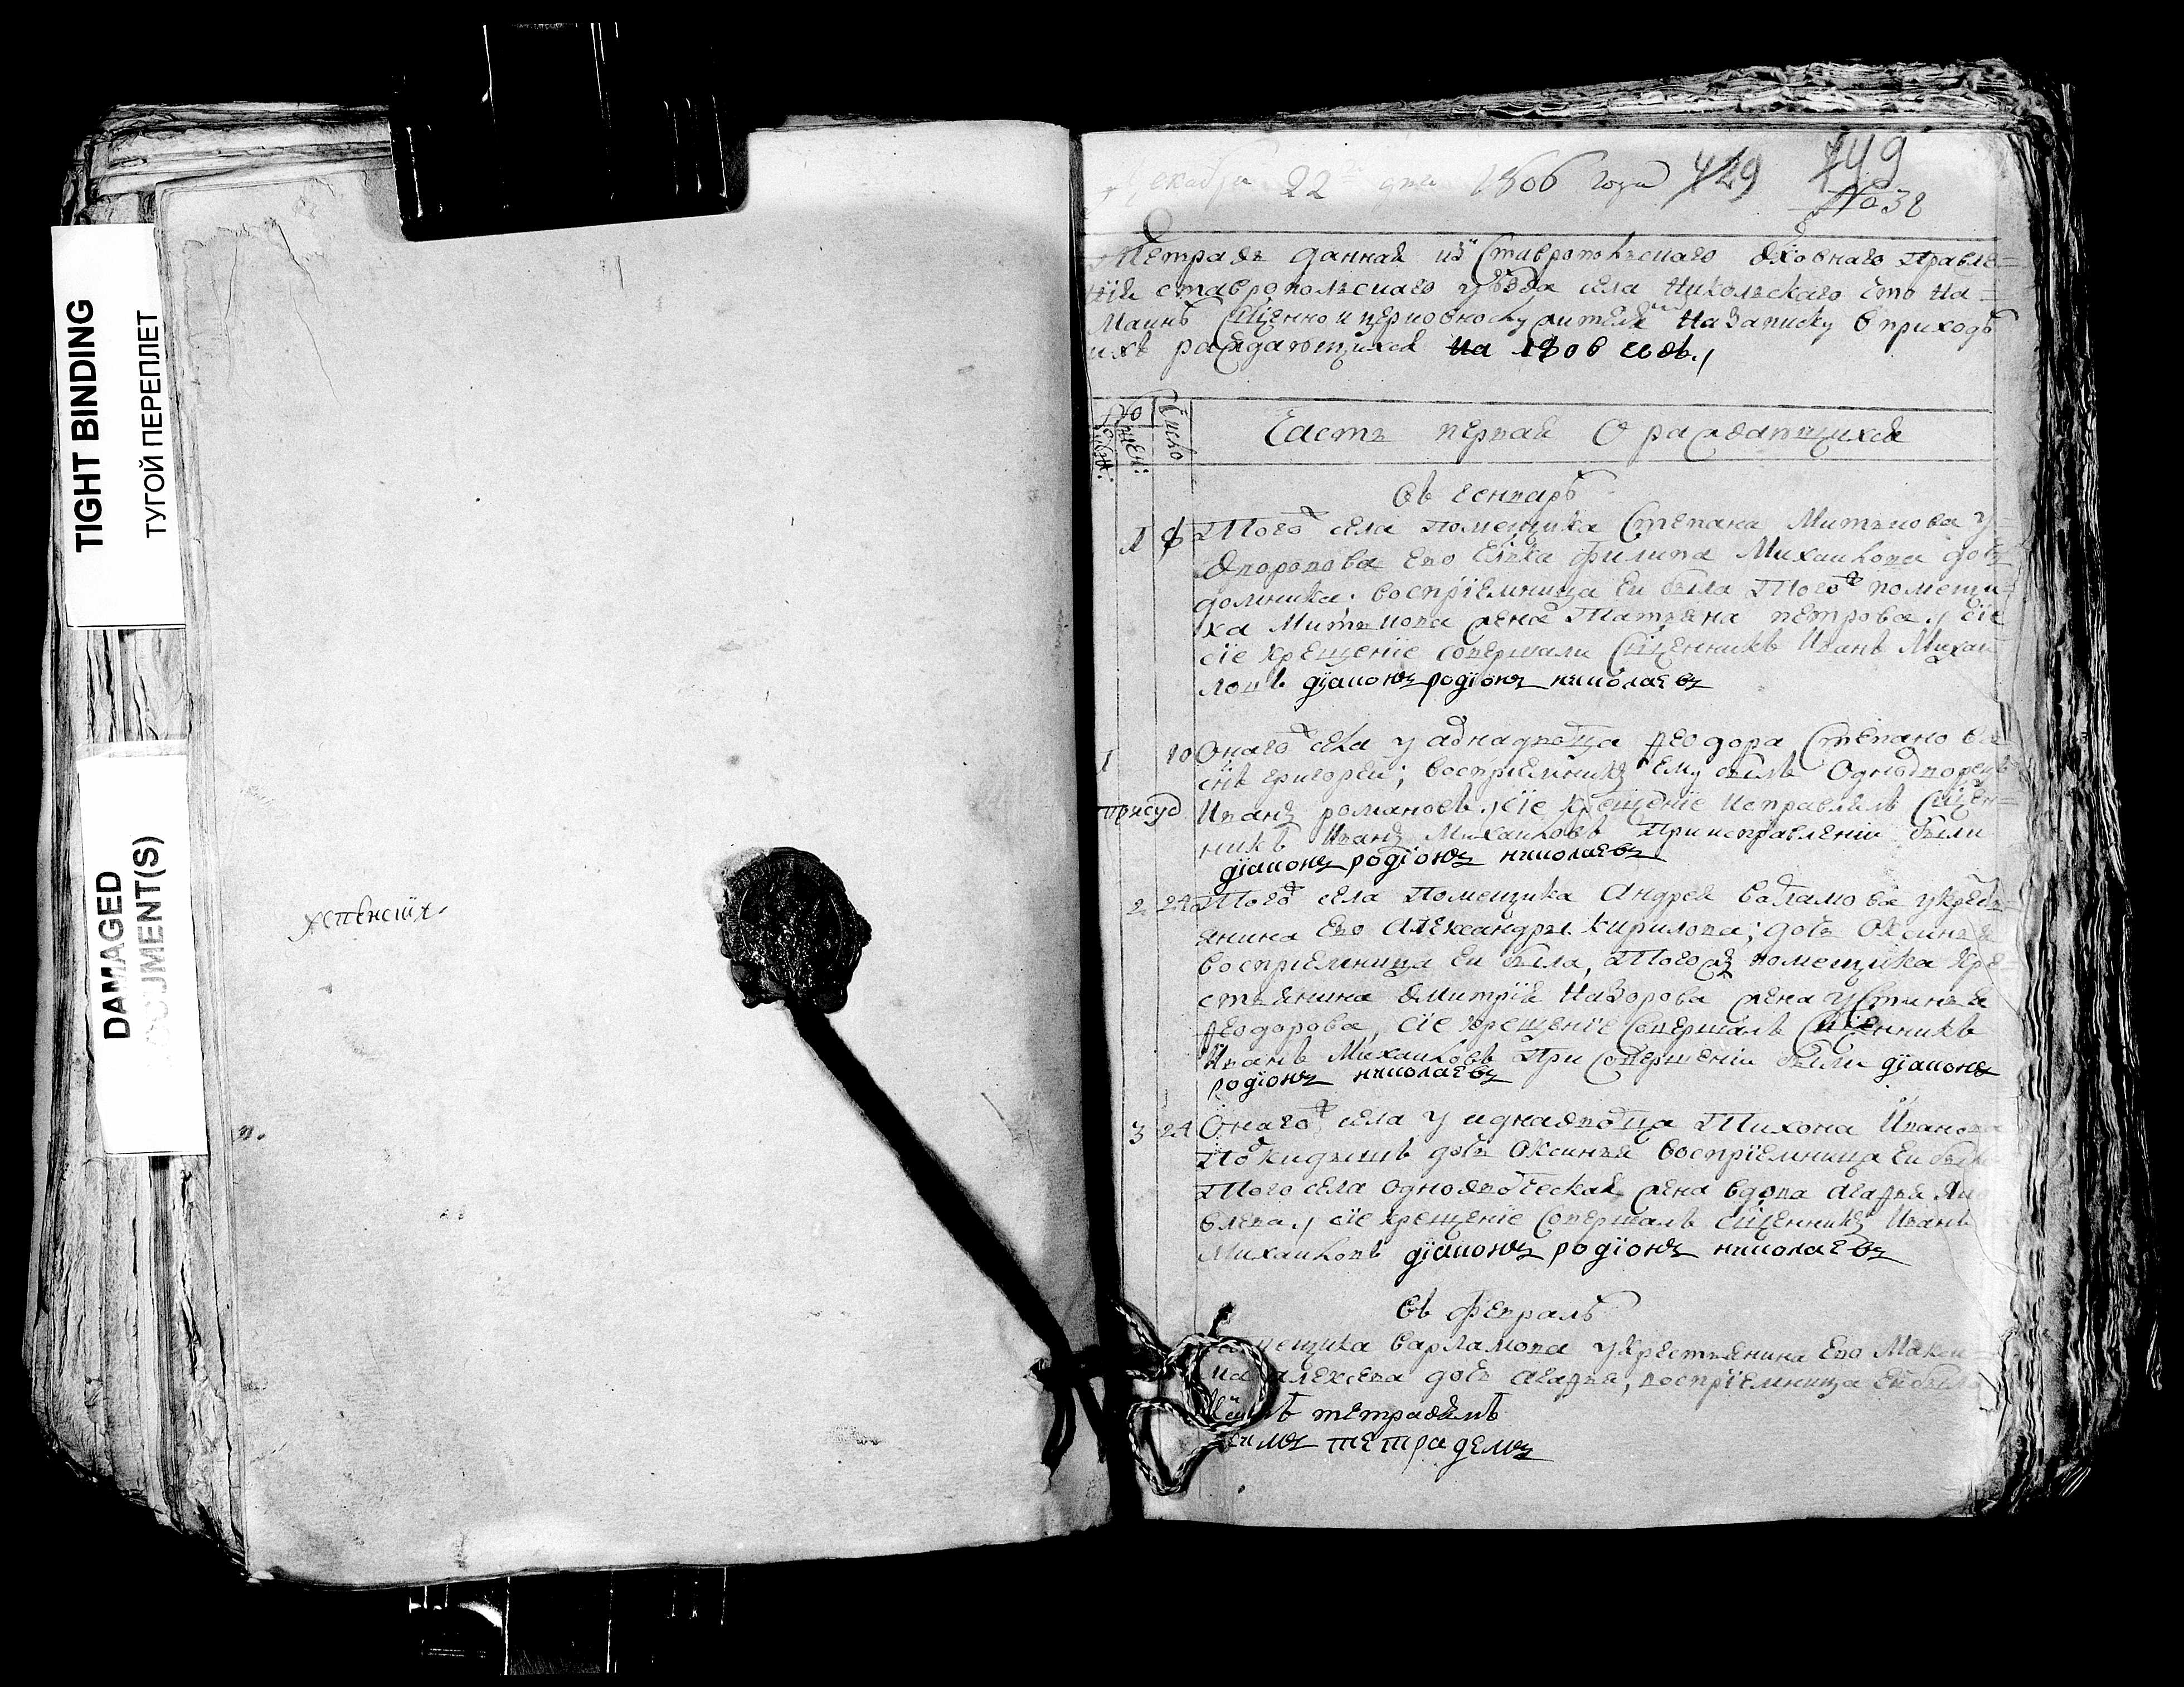 TIGHT BINDING
ТУГОЙ ПЕРЕПЛЕТ
DAMAGED
DOCUMENT(S)
декабря 22 дня 1806 года 429 449
№ 38
Тетрадь данная из Ставропольскаго дховнаго правле=
нїя ставропольскаго уѣзда села Никольскаго что на=
на записку в приходѣ
ихъ раждающихся на 1806 годъ
№
Число
Часть первая О раждающихся
Въ генварѣ
1
Того ж села помещика Степана Митькова у
дворового ево члвка Филипа Михаилова дочь
домника. восприемница еи была Того ж помещи=
ка Митькова жена Татьяна петрова, сїе
сїе крещенїе совершали Сщенникъ Иванъ Михаи
ловъ дїаконъ родїонъ николаевъ
1 10 Онаго ж села у аднадворца Феодора Степанова
снъ григореи; восприемникъ ему былъ Однодворецъ
Иванъ романовъ, сїе крещенїе исправлялъ Сщен=
никъ Иванъ Михаиловъ При исправленїи были
дїаконъ родїонъ николаевъ
2 24 Того ж села помещика Андрея Варламова у кресть=
янина ево Александры кирилова; дочь Оксинья
восприемница еи была, Того ж помещика кре=
стьянина Дмитрїя Назорова жена устинья
Феодорова, сїе крещенїе совершалъ Сщенникъ
Иванъ Михаиловъ При совершенїи были дїаконъ
родїонъ николаевъ
3 24 Онаго ж села у иднадворца Тихона Иванова
подкидышъ дочь Оксинья восприемница еи была
Того села однодворческая жена вдова агафья Яко
влева, сїе крещенїе совершалъ сщенникъ Иванъ
Михаиловъ дїаконъ родїонъ николаевъ
Въ февралѣ
помещика варламова у крестьянина ево Макси=
ма алексева дочь агафья, восприемница еи была
тетрадемъ
тетрадемъ